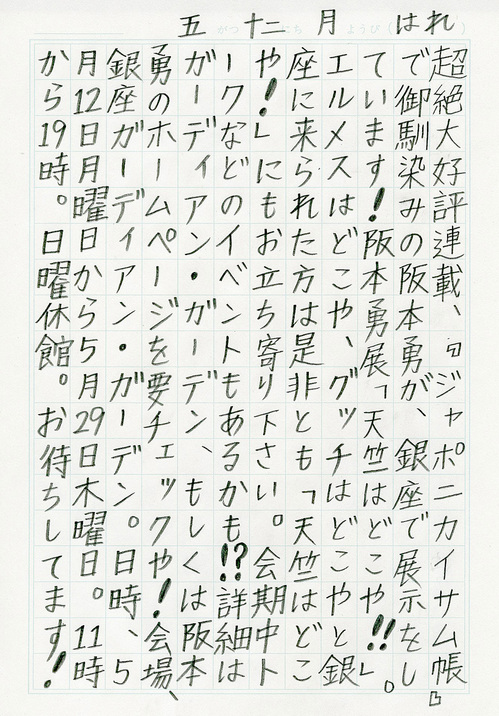 五 がつ 十二 にち 月 ようび（はれ）
超絶大好評連載、『ジャポニカイサム帳』
で御馴染みの阪本勇が、銀座で展示をし
ています！阪本勇展「天竺はどこや!!」。
エルメスはどこや、グッチはどこやと銀
座に来られた方は是非とも「天竺はどこ
や！」にもお立ち寄り下さい。会期中ト
ークなどのイベントもあるかも!?詳細は
ガーディアン・ガーデン、もしくは阪本
勇のホームページを要チェックや！会場、
銀座ガーディアン・ガーデン。日時、5
月12日月曜日から5月29日木曜日。11時
から19時。日曜休館。お待ちしてます！